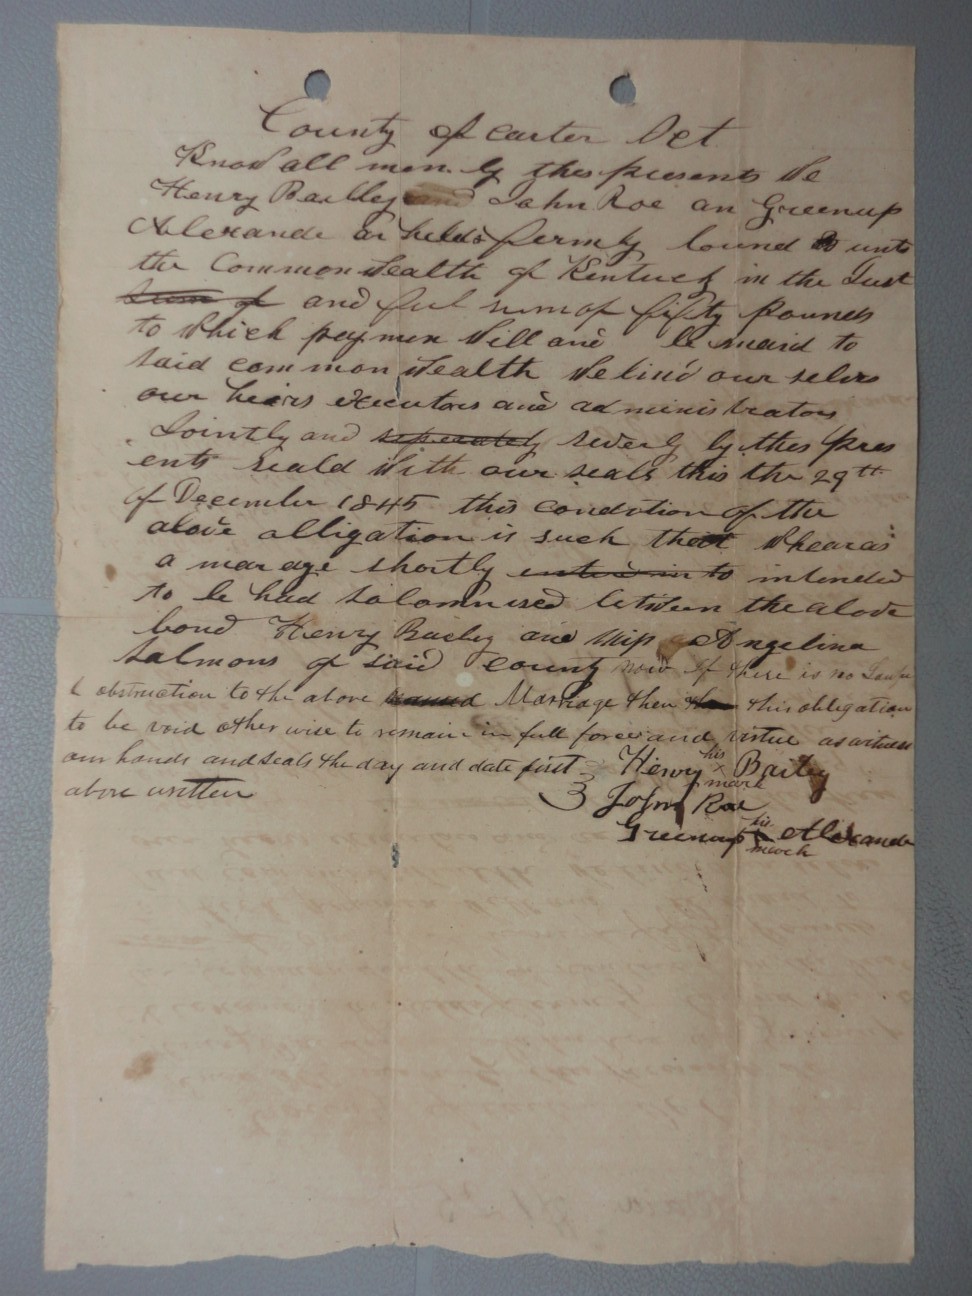 County of carter Sct
Know all men by thes presents We
Henry Bailley and John Roe an Greenup
Alexande ar held & firmly bound unto
the Commonwealth of Kentucky in the Just
sum of and ful sum of fifty Pounds
to which paymen Will and be maid to
said common wealth We bind our selvs
our heirs executors and administrators
Jointly and seperately severly by thes pres
ents seald With our seals this the 29th
of December 1845 this condition of the
above alligation is such that Wheareas
a marage shortly entered in to intended
to be had Solomnised between the above
bond Henry Bailey and Miss Angelina
Salmons of said county now if there is no Lawfu
l obstruction to the above Marriage then this obligation
to be void other wise to remain in full force and virtue as witness
our hands and seals the day and date first Henry his x mark Bailey
above written 3 John Roe
Greenup his x mark Alexande